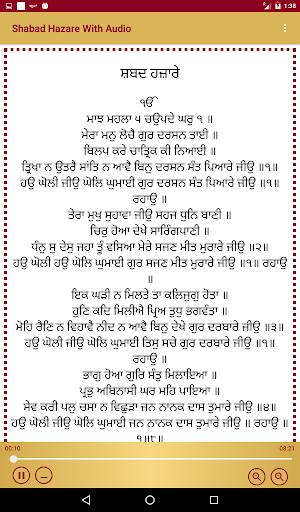 1:38
Shabad Hazare With Audio
ਸ਼ਬਦ ਹਜ਼ਾਰੇ
ੴ
ਮਾਝ ਮਹਲਾ ੫ ਚਉਪਦੇ ਘਰੁ ੧ ॥
ਮੇਰਾ ਮਨੁ ਲੋਚੈ ਗੁਰ ਦਰਸਨ ਤਾਈ ॥
ਬਿਲਪ ਕਰੇ ਚਾਤ੍ਰਿਕ ਕੀ ਨਿਆਈ ॥
ਤ੍ਰਿਖਾ ਨ ਉਤਰੈ ਸਾਂਤਿ ਨ ਆਵੈ ਬਿਨੁ ਦਰਸਨ ਸੰਤ ਪਿਆਰੇ ਜੀਉ ॥੧॥
ਹਉ ਘੋਲੀ ਜੀਉ ਘੋਲਿ ਘੁਮਾਈ ਗੁਰ ਦਰਸਨ ਸੰਤ ਪਿਆਰੇ ਜੀਉ ॥੧॥
ਰਹਾਉ ॥
ਤੇਰਾ ਮੁਖੁ ਸੁਹਾਵਾ ਜੀਉ ਸਹਜ ਧੁਨਿ ਬਾਣੀ ॥
ਚਿਰੁ ਹੋਆ ਦੇਖੇ ਸਾਰਿੰਗਪਾਣੀ ॥
ਧੰਨੁ ਸੁ ਦੇਸੁ ਜਹਾ ਤੂੰ ਵਸਿਆ ਮੇਰੇ ਸਜਣ ਮੀਤ ਮੁਰਾਰੇ ਜੀਉ ॥੨॥
ਹਉ ਘੋਲੀ ਹਉ ਘੋਲਿ ਘੁਮਾਈ ਗੁਰ ਸਜਣ ਮੀਤ ਮੁਰਾਰੇ ਜੀਉ ॥੧॥ ਰਹਾਉ
॥
ਇਕ ਘੜੀ ਨ ਮਿਲਤੇ ਤਾ ਕਲਿਜੁਗੁ ਹੋਤਾ ॥
ਹੁਣਿ ਕਦਿ ਮਿਲੀਐ ਪ੍ਰਿਅ ਤੁਧੁ ਭਗਵੰਤਾ ॥
ਮੋਹਿ ਰੈਣਿ ਨ ਵਿਹਾਵੈ ਨੀਦ ਨ ਆਵੈ ਬਿਨੁ ਦੇਖੇ ਗੁਰ ਦਰਬਾਰੇ ਜੀਉ ॥੩॥
ਹਉ ਘੋਲੀ ਜੀਉ ਘੋਲਿ ਘੁਮਾਈ ਤਿਸੁ ਸਚੇ ਗੁਰ ਦਰਬਾਰੇ ਜੀਉ ॥੧॥
ਰਹਾਉ ॥
ਭਾਗੁ ਹੋਆ ਗੁਰਿ ਸੰਤੁ ਮਿਲਾਇਆ ॥
ਪ੍ਰਭੁ ਅਬਿਨਾਸੀ ਘਰ ਮਹਿ ਪਾਇਆ ॥
ਸੇਵ ਕਰੀ ਪਲੁ ਚਸਾ ਨ ਵਿਛੁੜਾ ਜਨ ਨਾਨਕ ਦਾਸ ਤੁਮਾਰੇ ਜੀਉ ॥੪॥
ਹਉ ਘੋਲੀ ਜੀਉ ਘੋਲਿ ਘੁਮਾਈ ਜਨ ਨਾਨਕ ਦਾਸ ਤੁਮਾਰੇ ਜੀਉ ॥ ਰਹਾਉ ॥
੧॥੮॥
00:10
08:21